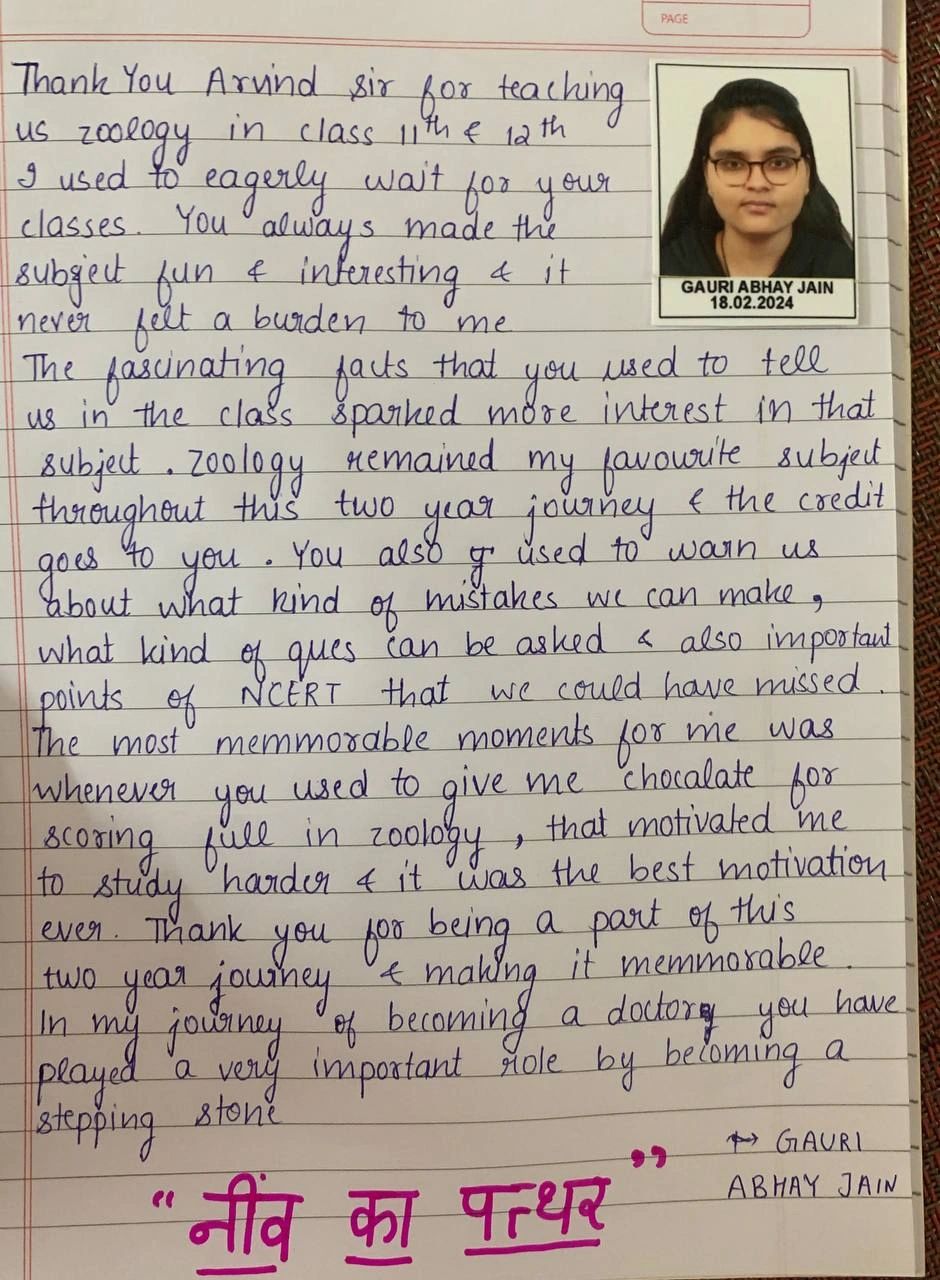 PAGE
Thank You Arvind sir for teaching
us zoology in class 11th & 12th
I used to eagerly wait for your
classes. You always made the
subject fun & interesting & it
never felt a burden to me
GAURI ABHAY JAIN
18.02.2024
The fascinating facts that you used to tell
us in the class sparked more interest in that
subject. Zoology remained my favourite subject
throughout this two year journey & the credit
goes to you. You also used to warn us
about what kind of mistakes we can make,
what kind of ques can be asked & also important
points of NCERT that we could have missed.
The most memmorable moments for me was
whenever you used to give me chocalate for
scoring full in zoology, that motivated me
to study harder & it was the best motivation
ever. Thank you for being a part of this
two year journey & making it memmorable.
In my journey of becoming a doctor you have
played a very important role by becoming a
stepping stone
→ GAURI
ABHAY JAIN
“नींव का पत्थर”